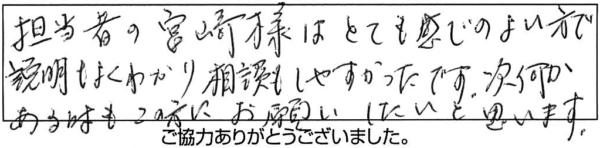 担当者の宮崎様はとても感じのよい方で
説明もよくわかり相談もしやすかったです。次何か
ある時もこの方にお願いしたいと思います。
ご協力ありがとうございました。